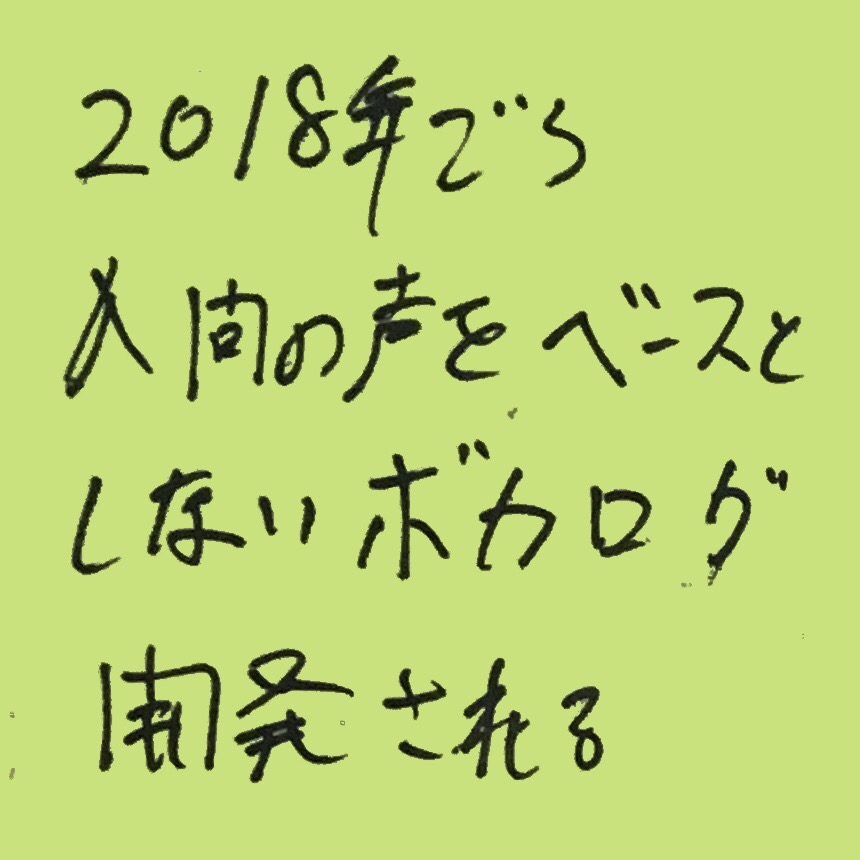 2018年ごろ
人間の声をベースと
しないボカロが
開発される